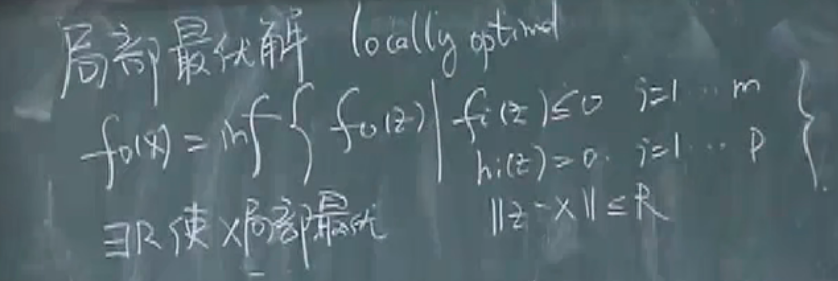 局部最优解 locally optimal
f₀(x) = inf { f₀(z) | fi(z) ≤ 0 i=1 … m
hi(z) = 0. i=1 … p }
∃R 使 x局部最优 ‖z-x‖ ≤ R